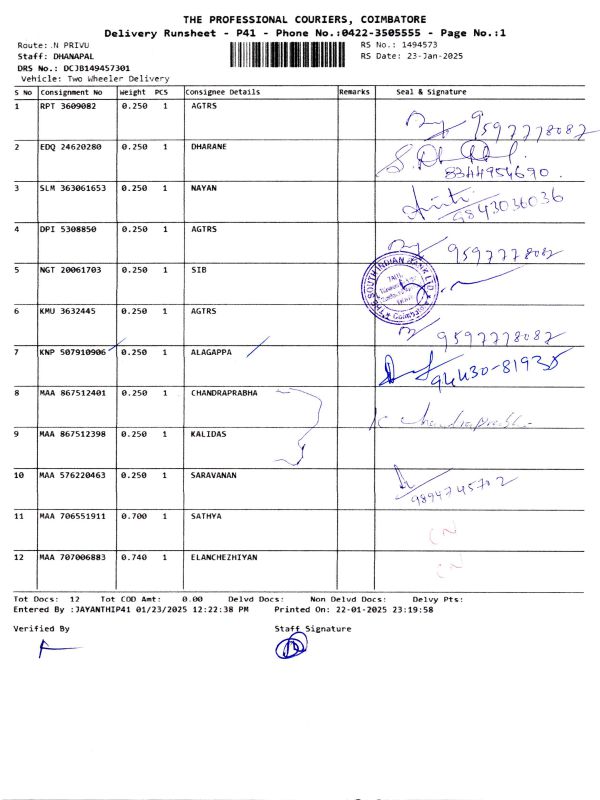 THE PROFESSIONAL COURIERS, COIMBATORE
Delivery Runsheet - P41 - Phone No.:0422-3505555 - Page No.:1
Route: .N PRIVU RS No.: 1494573
Staff: DHANAPAL RS Date: 23-Jan-2025
DRS No.: DCJB149457301
Vehicle: Two Wheeler Delivery
S No Consignment No Weight PCS Consignee Details Remarks Seal & Signature
1 RPT 3609082 0.250 1 AGTRS
9597778087
2 EDQ 24620280 0.250 1 DHARANE
8344954690.
3 SLM 363061653 0.250 1 NAYAN
9843036036
4 DPI 5308850 0.250 1 AGTRS
9597778082
5 NGT 20061703 0.250 1 SIB
SOUTH INDIAN BANK LTD.
6 KMU 3632445 0.250 1 AGTRS
9597778087
7 KNP 507910906 0.250 1 ALAGAPPA
94430-81935
8 MAA 867512401 0.250 1 CHANDRAPRABHA
9 MAA 867512398 0.250 1 KALIDAS
10 MAA 576220463 0.250 1 SARAVANAN
9894745702
11 MAA 706551911 0.700 1 SATHYA
CN
12 MAA 707006883 0.740 1 ELANCHEZHIYAN
CN
Tot Docs: 12 Tot COD Amt: 0.00 Delvd Docs: Non Delvd Docs: Delvy Pts:
Entered By :JAYANTHIP41 01/23/2025 12:22:38 PM Printed On: 22-01-2025 23:19:58
Verified By Staff Signature